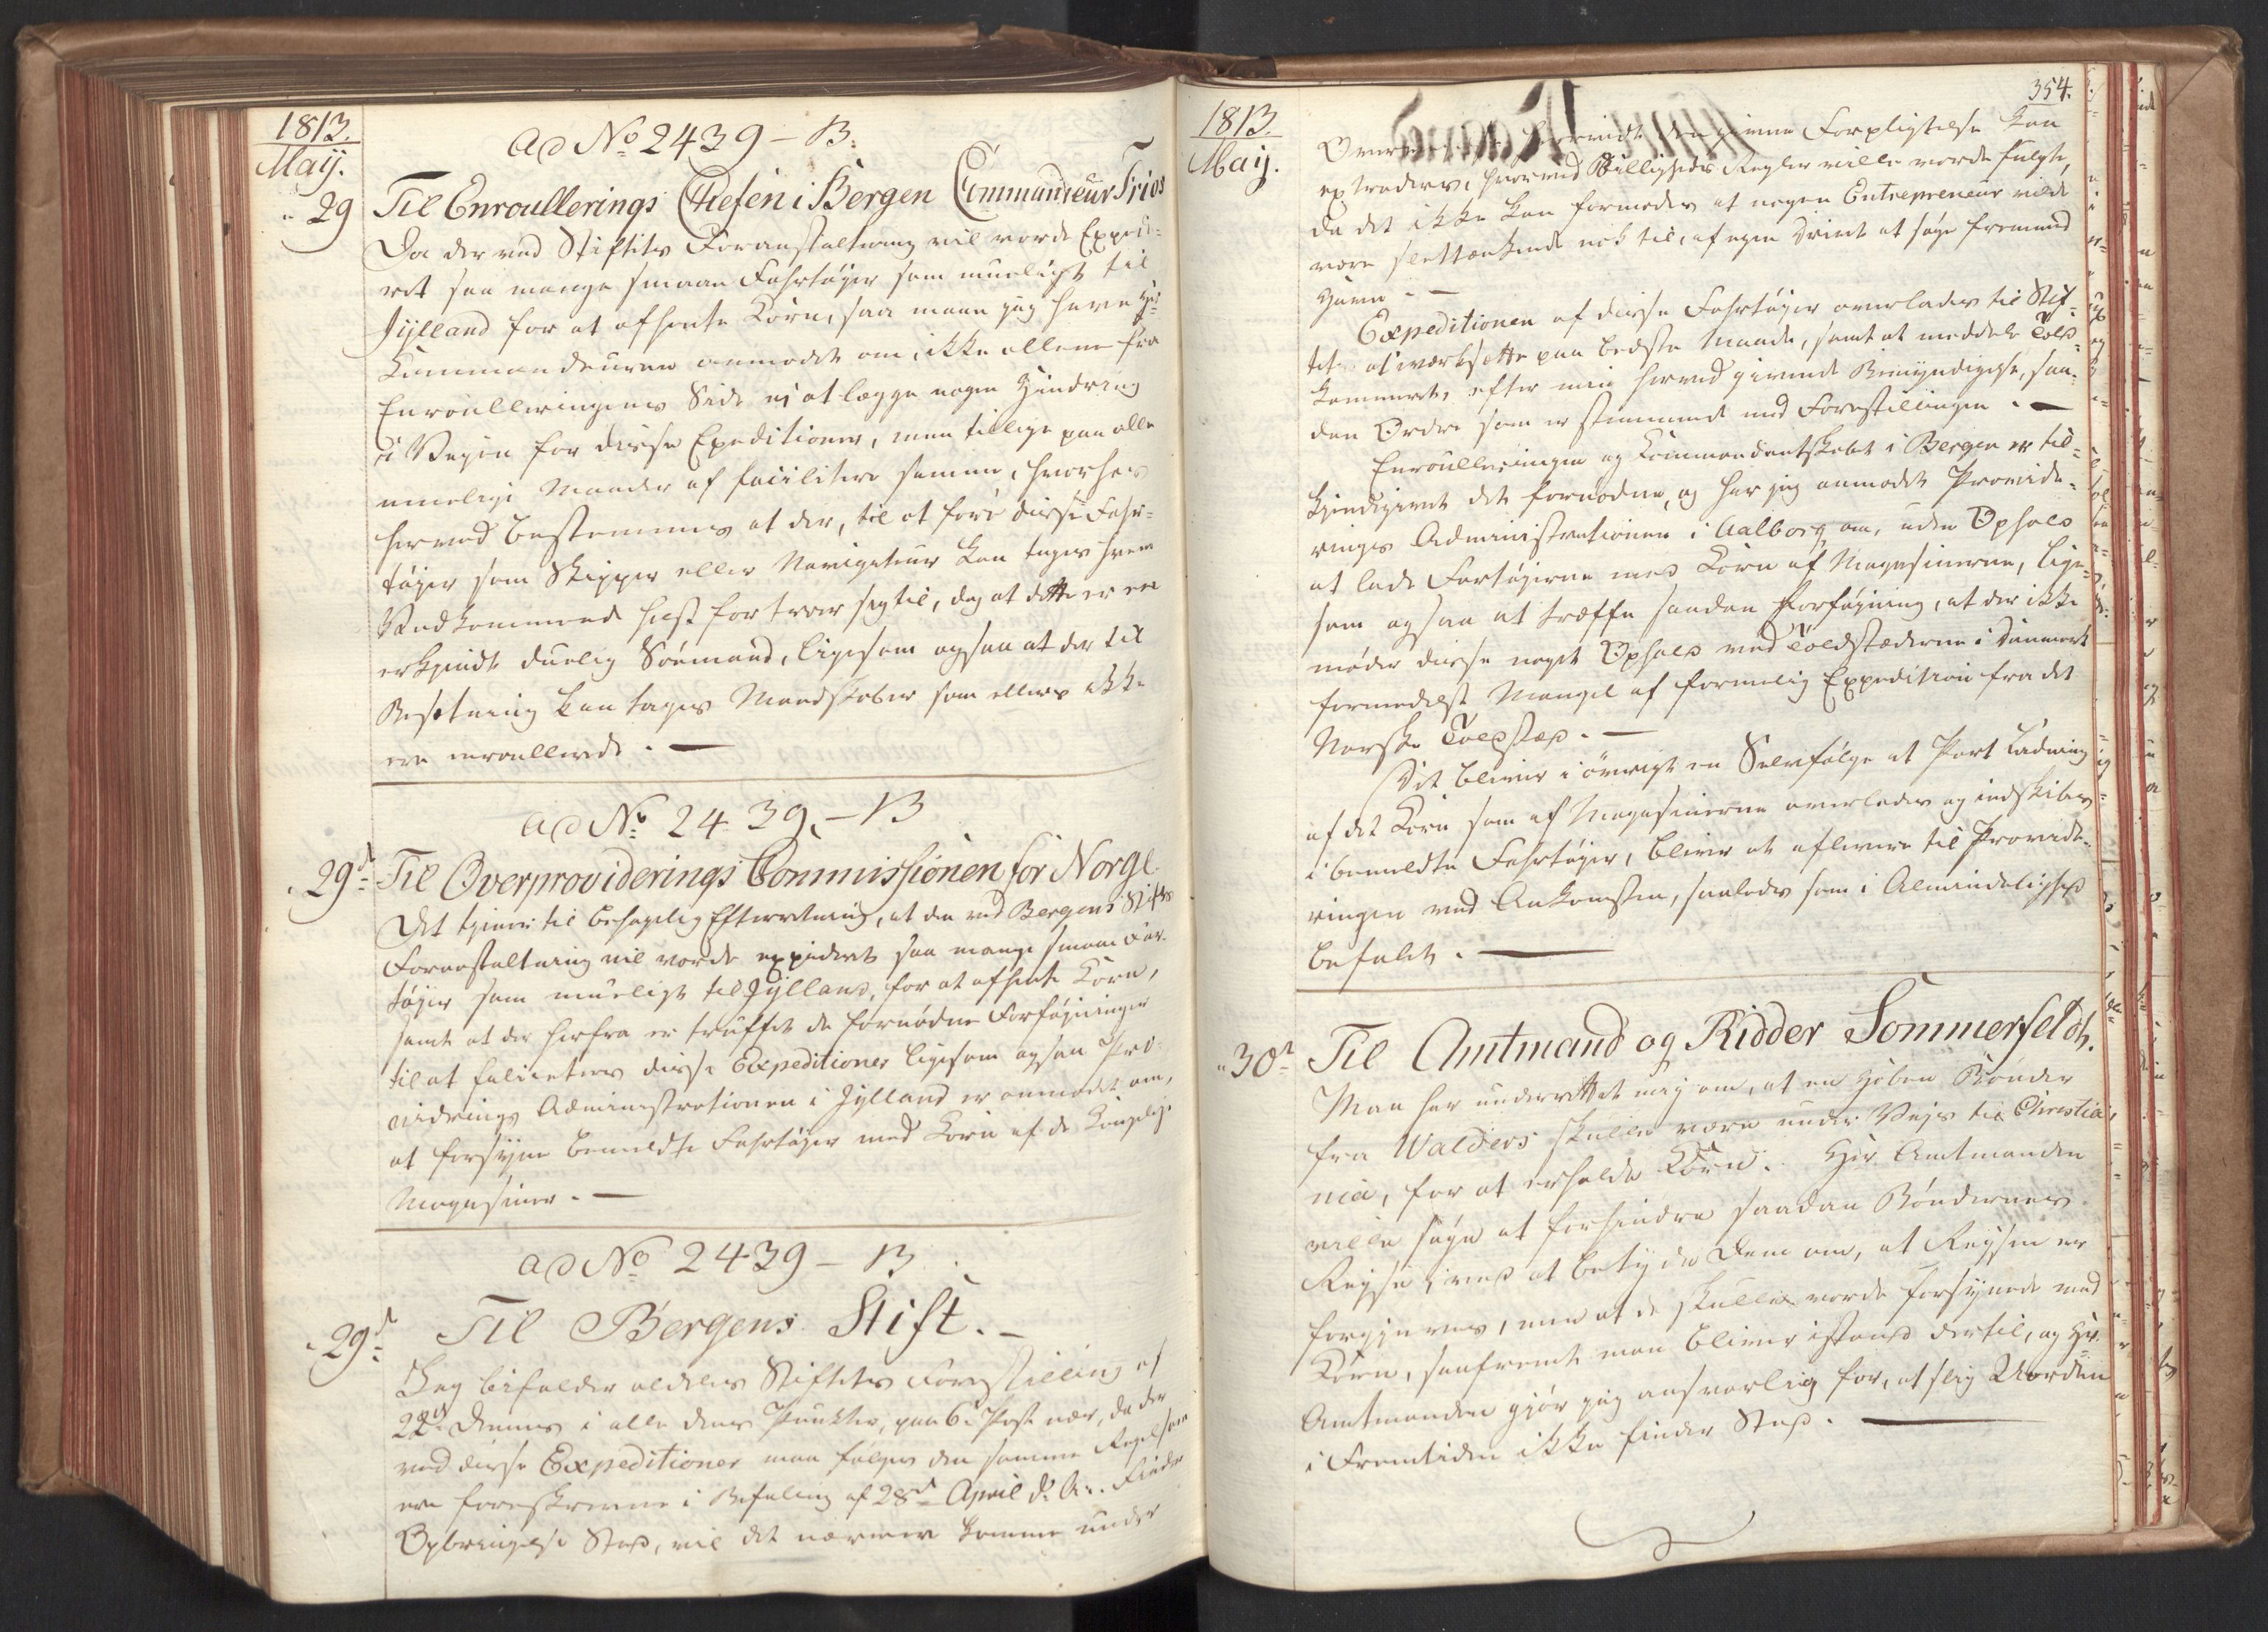 1813.
Maij.
ad No 2439 – B.
29 Til Enroullerings Chefen i Bergen Commandeur Fries
Da der ved Stiftets Foranstaltning vil vorde Expede-
ret saa mange smaae Fahrtøjer som mueligt til
Jÿlland for at afhente Korn, saa maae jeg have Hr
Kummandeuren anmodet om, ikke allene fra
Enroulleringens Side ej at lægge nogen Hindring
i Vejen for disse Expeditioner, men tillige paa alle
muelige Maader at facilitere samme, hvorhos
herved bestemmes at der, til at føre disse Fahr-
tøjer som Skipper eller Navigateur kan tages hvem
Vedkommende helst fortroer sig til, dog at dette er en
erkjendt duelig Søemand, ligesom ogsaa at der til
Besetning kan tages Mandskaber som ellers ikke
ere enroullerede. —
ad No 2439. – B
29d Til Overproviderings Commissionen for Norge
Det tjener til behagelig Efterretning, at der ved Bergens Stifts
Foranstaltning vil vorde expederet saa mange smaae Far-
tøjer som mueligt til Jÿlland, for at afhente Korn,
samt at der herfra er truffet de fornødne Forføjninger
til at faliciteres disse Expeditioner ligesom ogsaa Pro-
viderings Administrationen i Jÿlland er anmodet om,
at forsÿne bemeldte Fahrtøjer med Korn af de Kongelige
Magasiner. —
ad No 2439 – B.
29d Til Bergens Stift. –
Jeg bifalder aldeles Stiftets Forestilling af
22d Dennes i alle dens Punkter, paa 6te Post nær, da der
ved disse Expeditioner maa følges den samme Regel som
ere foreskrevne i Befaling af 28d April d. A. Finder
Opbringelse Sted, vil det nærmere komme under
354.
1813.
Maij.
hvorvidt den givne Forpligtelse kan
extraderes, hvorved Billigheds Regler ville vorde fulgte,
da det ikke kan formodes at nogen Entrepreneur vilde
være slettænkende nok til, af egen Drivt at søge fremmed
Havn. —
Expeditionen af disse Fahrtøjer overlades til Stif-
tet at iværksette paa bedste Maade, samt at meddele Told-
kammeret, efter min herved givende Bemÿndigelse, saa-
dan Ordre som er stemmende med Forestillingen. —
Enroulleringen og Kommandantskabet i Bergen er til-
kjendegivet det fornødne, og har jeg anmodet Provide-
rings Administrationen i Aalborg om, uden Ophold
at lade Fartøjerne med Korn af Magasinerne, lige-
som ogsaa at træffe saadan Forføjning, at der ikke
møder disse noget Ophold ved Toldstæderne i Danmark
formedelst Mangel af formelig Expedition fra det
Norske Toldsted. —
Det bliver i øvrigt en Selvfølge at Part Ladning
af det Korn som af Magasinerne overlades og indskibes
i bemeldte Fahrtøjer, bliver at aflevere til Provide-
ringen ved Ankomsten, saaledes som i Almindelighed
befalet. —
30d Til Amtmand og Ridder Sommerfeldt.
Man har underrettet mig om, at en Hoben Bønder
fra Walders skulle være under Vejs til Christia-
nia, for at erholde Korn. Her Amtmanden
ville søge at forhindre saadan Bøndernes
Rejse, ved at betÿde Dem om, at Rejsen er
forgjeves, men at de skulle vorde forsÿnede med
Korn, saafremt man bliver istand dertil, og Hr.
Amtmanden gjør jeg ansvarlig for, at slig Uorden
i Fremtiden ikke finder Sted. —